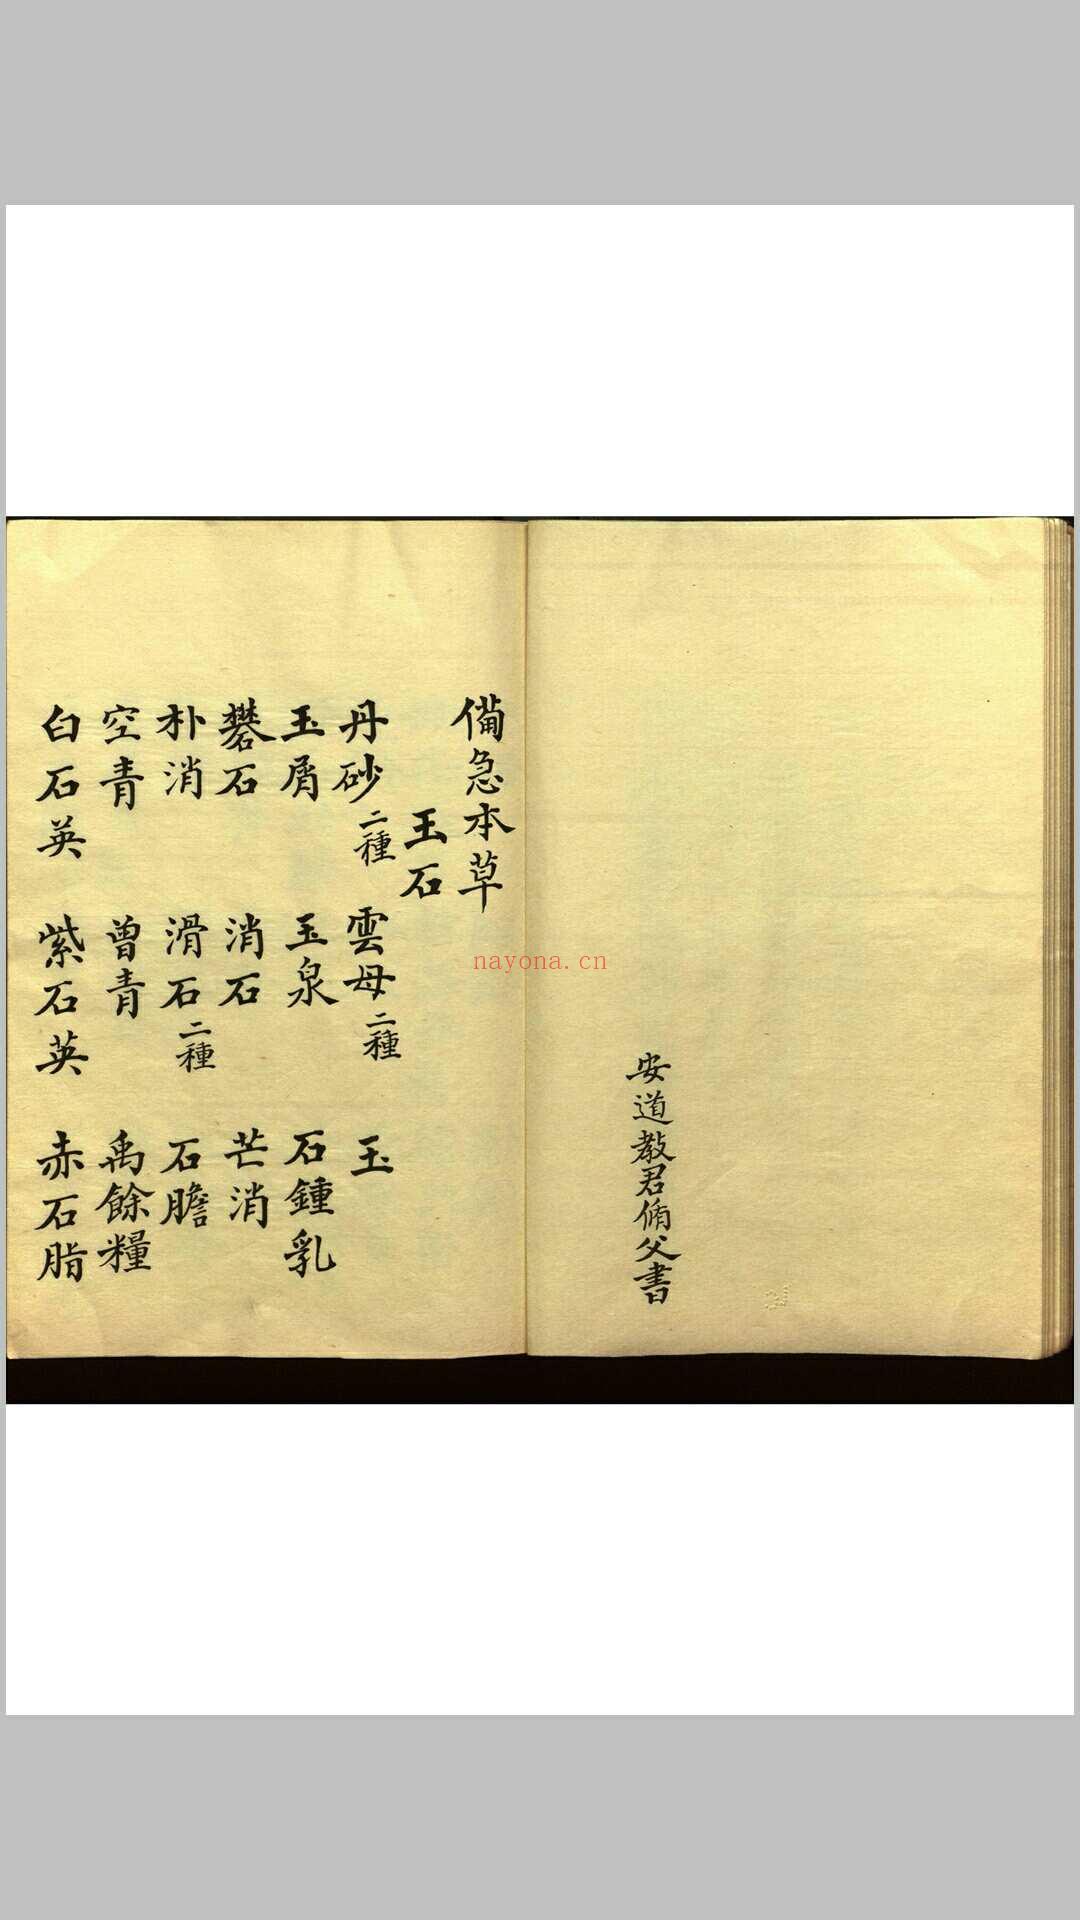 安道教君脩父書
備急本草
玉石
丹砂二種 雲母二種 玉
玉屑 玉泉 石鍾乳
礬石 消石 芒消
朴消 滑石二種 石膽
空青 曾青 禹餘糧
白石英 紫石英 赤石脂
nayona.cn